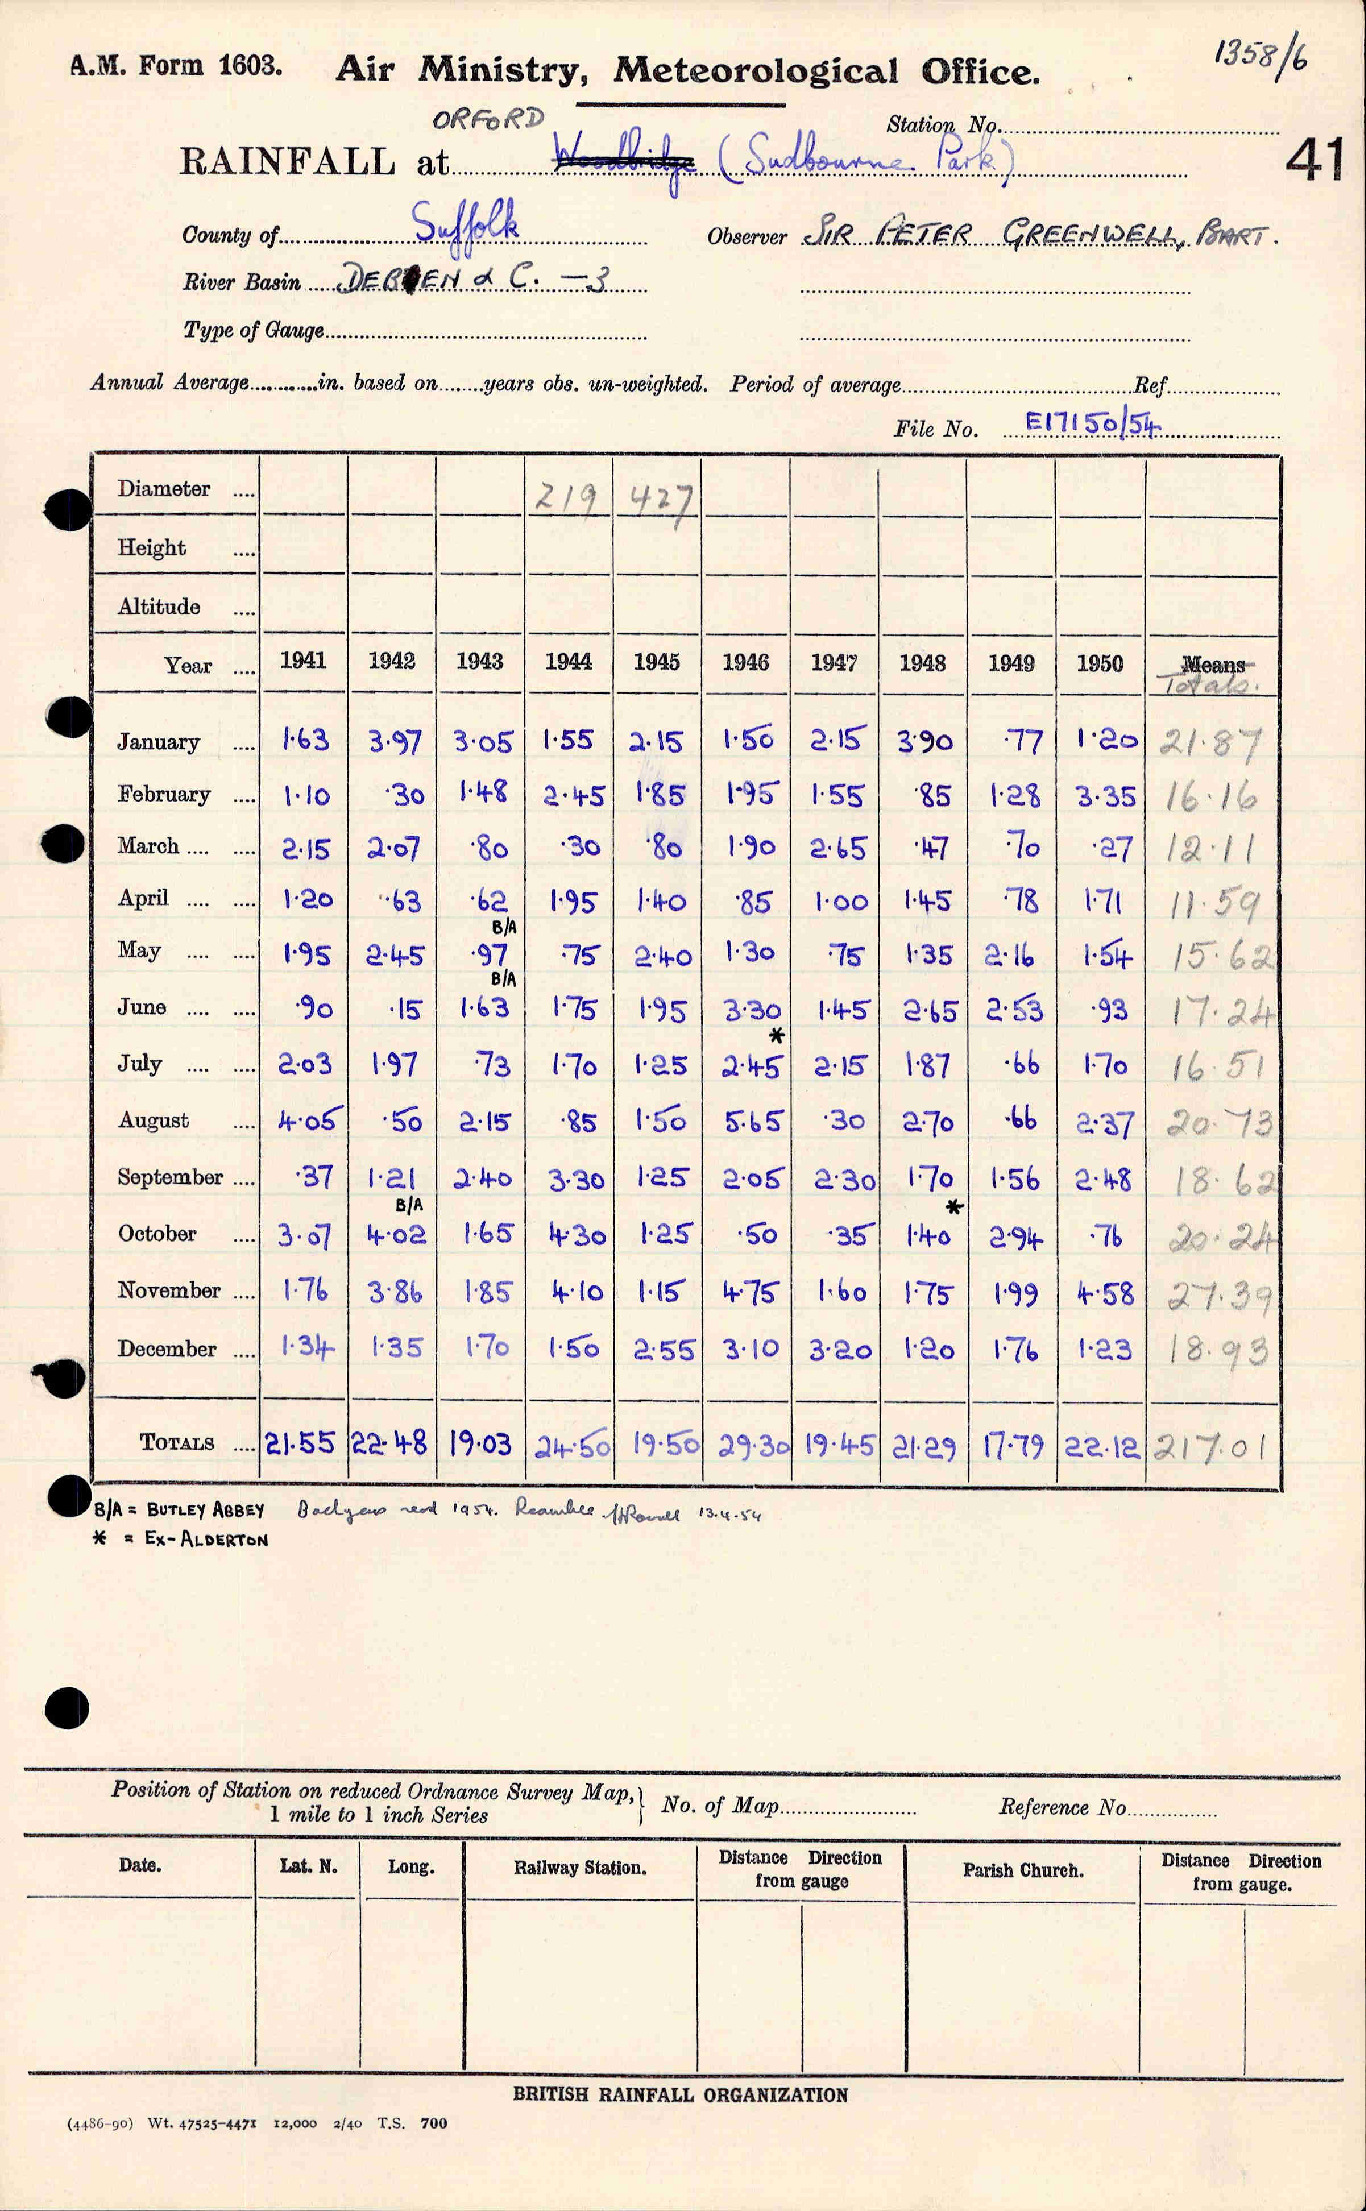 1358/6
A.M. Form 1603. Air Ministry, Meteorological Office.
ORFORD
Station No.
RAINFALL at Woodbridge (Sudbourne Park)
41
County of Suffolk Observer SIR PETER GREENWELL, BART.
River Basin DEBEN & C. —3
Type of Gauge
Annual Average in. based on years obs. un-weighted. Period of average Ref
File No. E17150/54
Diameter .... 219 427
Height ....
Altitude ....
Year .... 1941 1942 1943 1944 1945 1946 1947 1948 1949 1950 Means
Totals.
January .... 1.63 3.97 3.05 1.55 2.15 1.50 2.15 3.90 .77 1.20 21.87
February .... 1.10 .30 1.48 2.45 1.85 1.95 1.55 .85 1.28 3.35 16.16
March .... .... 2.15 2.07 .80 .30 .80 1.90 2.65 .47 .70 .27 12.11
April .... .... 1.20 .63 .62 1.95 1.40 .85 1.00 1.45 .78 1.71 11.59
B/A
May .... .... 1.95 2.45 .97 .75 2.40 1.30 .75 1.35 2.16 1.54 15.62
B/A
June .... .... .90 .15 1.63 1.75 1.95 3.30 1.45 2.65 2.53 .93 17.24
*
July .... .... 2.03 1.97 .73 1.70 1.25 2.45 2.15 1.87 .66 1.70 16.51
August .... 4.05 .50 2.15 .85 1.50 5.65 .30 2.70 .66 2.37 20.73
September .... .37 1.21 2.40 3.30 1.25 2.05 2.30 1.70 1.56 2.48 18.62
B/A *
October .... 3.07 4.02 1.65 4.30 1.25 .50 .35 1.40 2.94 .76 20.24
November .... 1.76 3.86 1.85 4.10 1.15 4.75 1.60 1.75 1.99 4.58 27.39
December .... 1.34 1.35 1.70 1.50 2.55 3.10 3.20 1.20 1.76 1.23 18.93
TOTALS .... 21.55 22.48 19.03 24.50 19.50 29.30 19.45 21.29 17.79 22.12 217.01
B/A = BUTLEY ABBEY 1954. 13.4.54
* = EX-ALDERTON
Position of Station on reduced Ordnance Survey Map,} No. of Map Reference No
1 mile to 1 inch Series
Date. Lat. N. Long. Railway Station. Distance Direction from gauge Parish Church. Distance Direction from gauge.
BRITISH RAINFALL ORGANIZATION
(4486-90) Wt. 47525-4471 12,000 2/40 T.S. 700